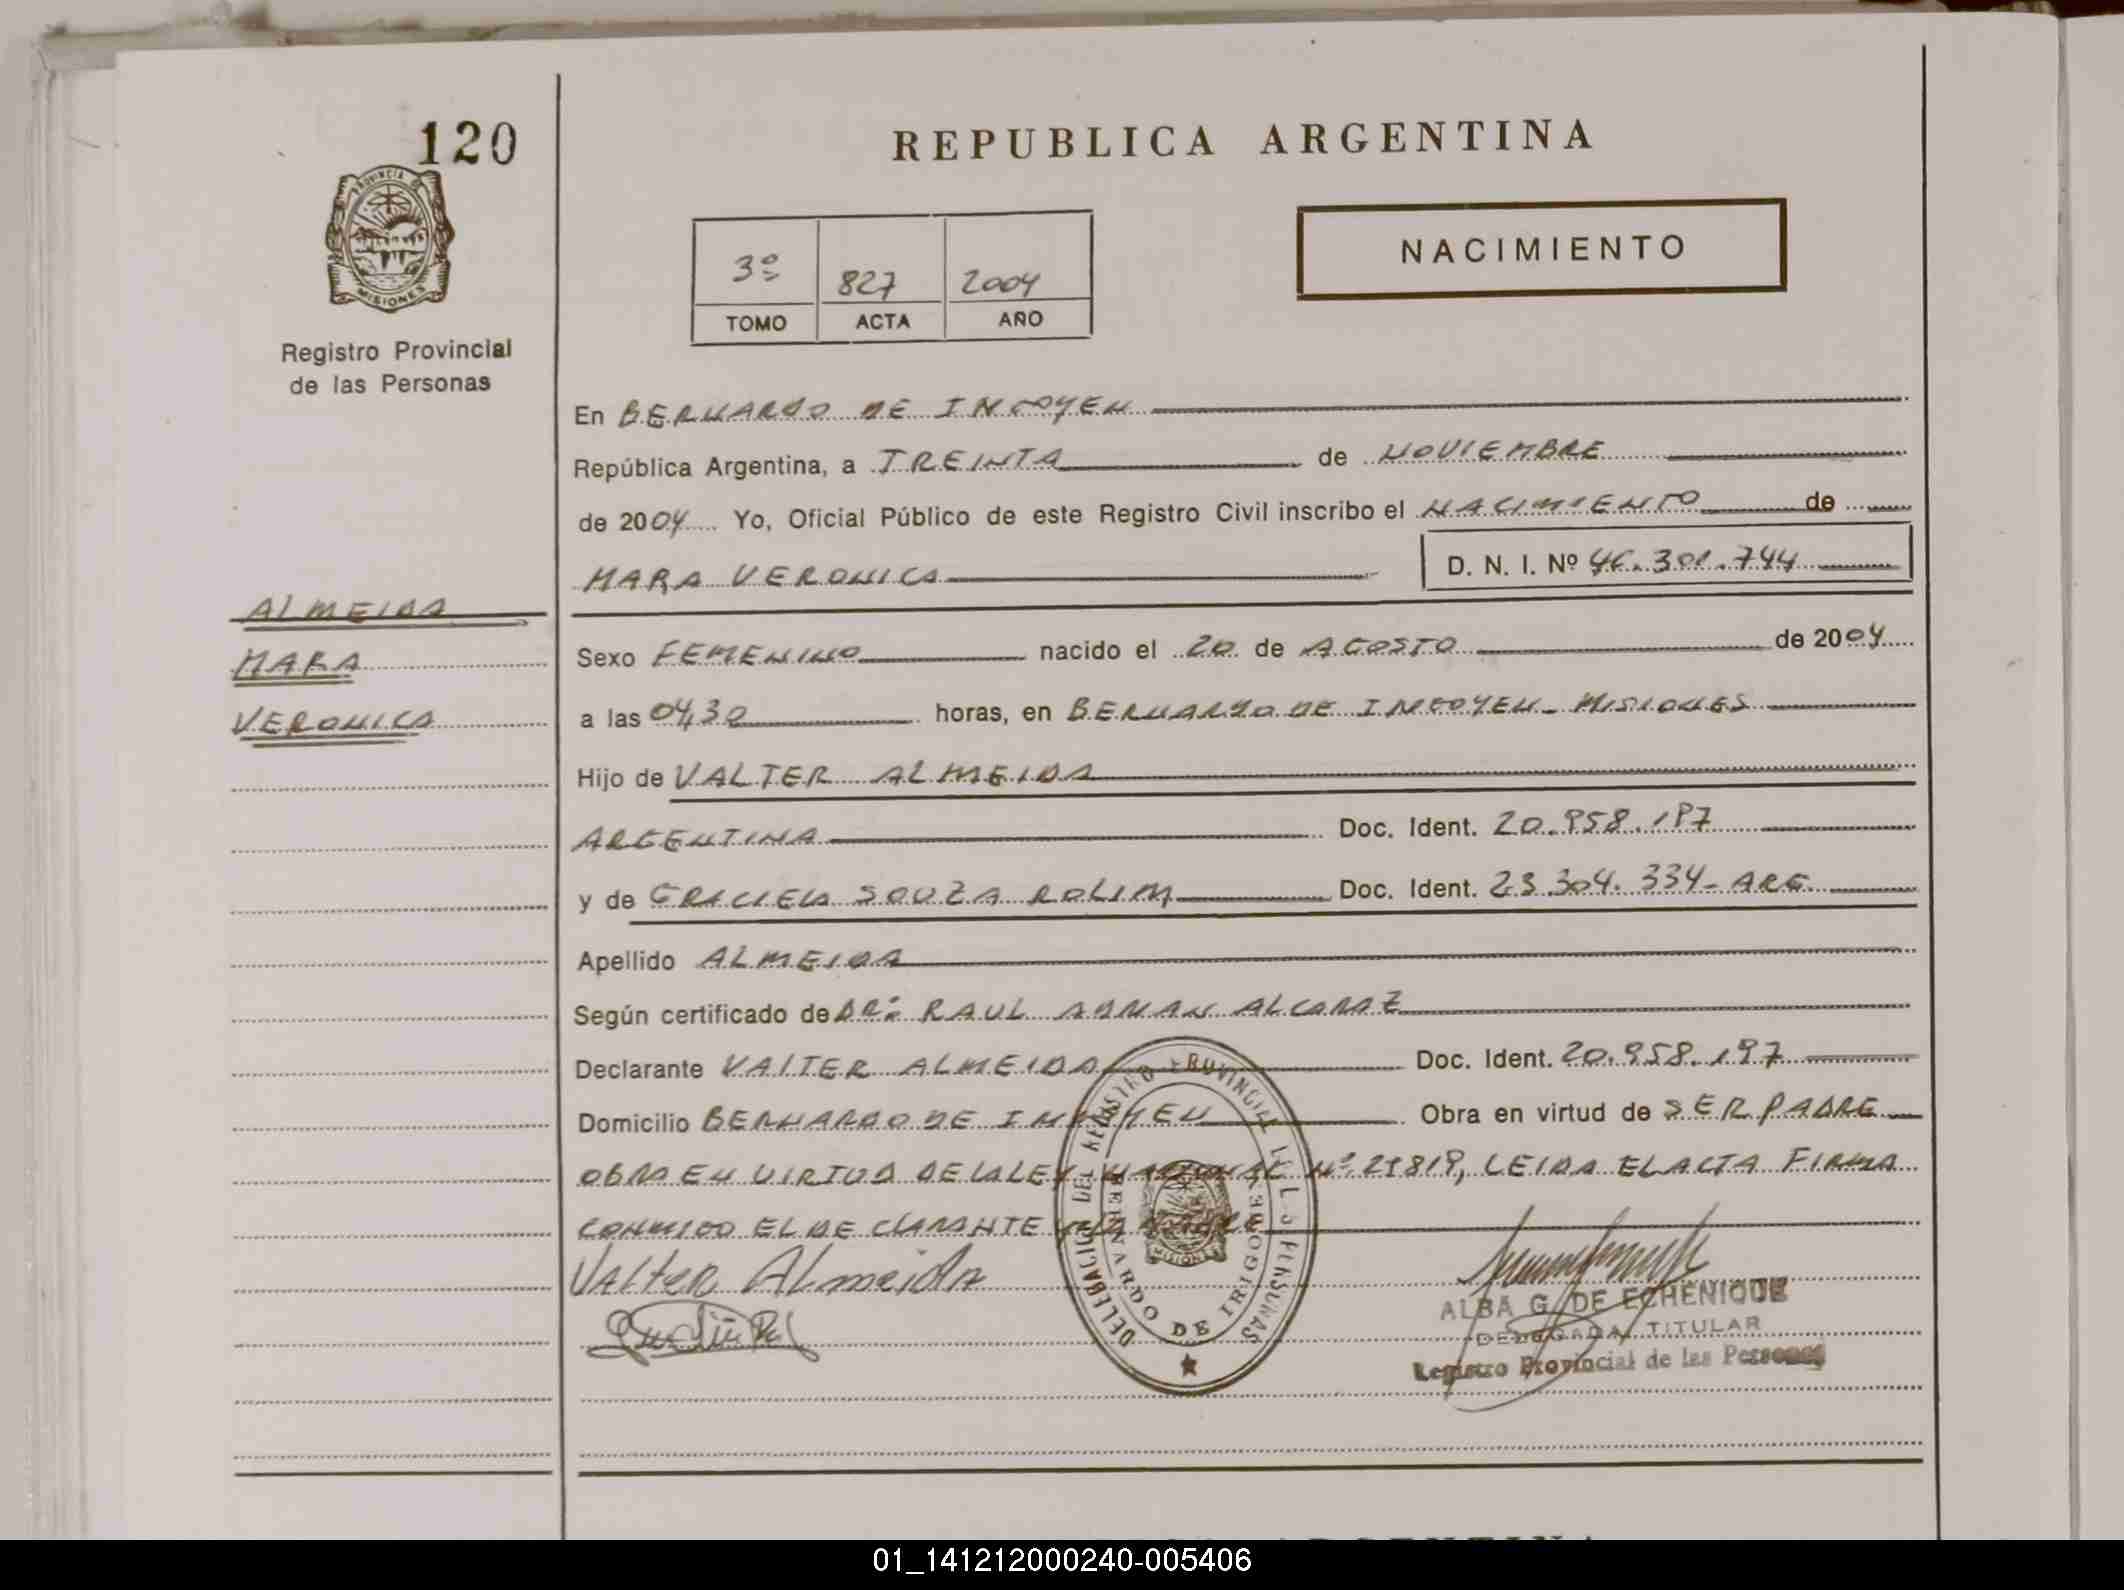 120
REPUBLICA ARGENTINA
PROVINCIA DE
MISIONES
NACIMIENTO
3º 827 2004
TOMO ACTA AÑO
Registro Provincial
de las Personas
En BERNARDO DE IRIGOYEN
República Argentina, a TREINTA de NOVIEMBRE
de 2004 Yo, Oficial Público de este Registro Civil inscribo el NACIMIENTO de
MARA VERONICA D. N. I. Nº 46.301.744
ALMEIDA
MARA
VERONICA
Sexo FEMENINO nacido el 20 de AGOSTO de 2004
a las 04,30 horas, en BERNARDO DE IRIGOYEN - MISIONES
Hijo de VALTER ALMEIDA
ARGENTINA Doc. Ident. 20.958.197
y de GRACIELA SOUZA ROLIM Doc. Ident. 23.304.334- ARG.
Apellido ALMEIDA
Según certificado de DR: RAUL ADRIAN ALCARAZ
Declarante VALTER ALMEIDA Doc. Ident. 20.958.197
Domicilio BERNARDO DE IRIGOYEN Obra en virtud de SER PADRE
OBRA EN VIRTUD DE LA LEY NACIONAL Nº 21819, LEIDA EL ACTA FIRMA
CONMIGO EL DECLARANTE Y LA MADRE
Valter Almeida
DELEGACION DEL REGISTRO PROVINCIAL DE LAS PERSONAS
BERNARDO DE IRIGOYEN
MISIONES
ALBA G. DE ECHENIQUE
DELEGADA TITULAR
Registro Provincial de las Personas
01_141212000240-005406